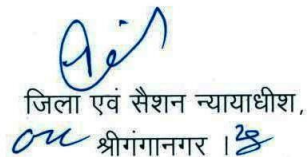 जिला एवं सैशन न्यायाधीश,
श्रीगंगानगर ।